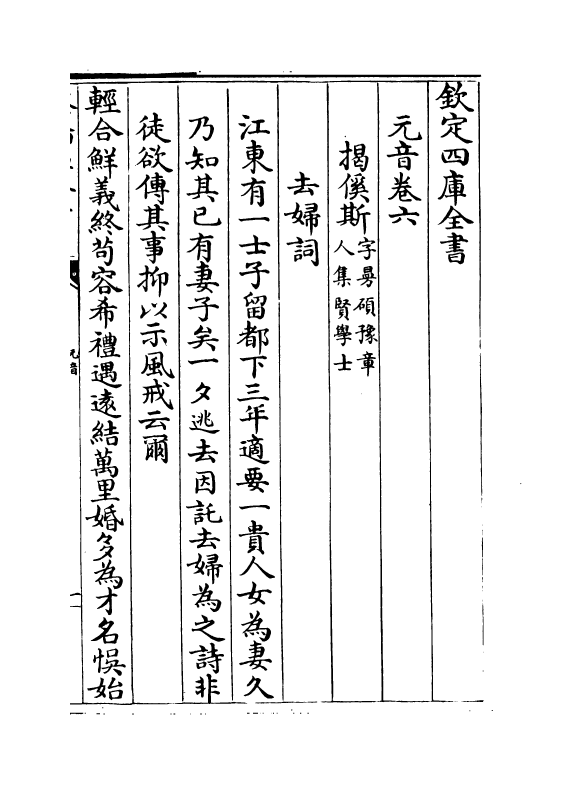 欽定四庫全書
元音卷六
揭傒斯字曼碩豫章
人集賢學士
去婦詞
江東有一士子留都下三年適要一貴人女為妻久
乃知其已有妻子矣一夕逃去因託去婦為之詩非
徒欲傳其事抑以示風戒云爾
輕合鮮義終苟容希禮遇遠結萬里婚多為才名悞始
元音
一